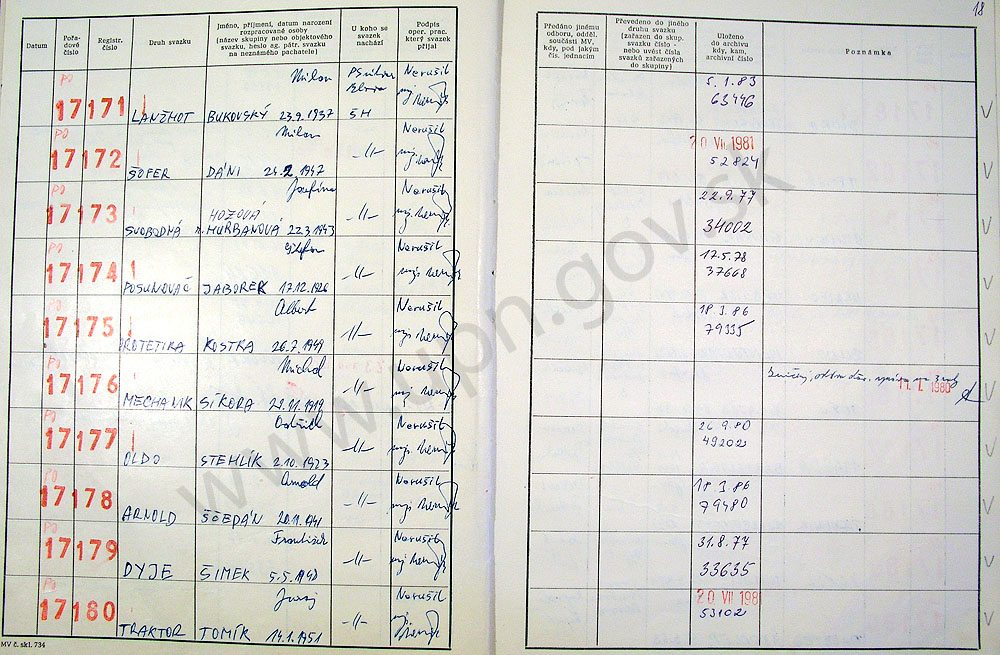 18
Datum
Pořadové číslo
Registr. číslo
Druh svazku
Jméno, příjmení, datum narození
rozpracované osoby
(název skupiny nebo objektového
svazku, heslo ag. pátr. svazku
na neznámého pachatele)
U koho se
svazek
nachází
Podpis
oper. prac.
který svazek
přijal
Předáno jinému
odboru, odděl.
součásti MV,
kdy, pod jakým
čís. jednacím
Převedeno do jiného
druhu svazku
(zařazen do skup.
svazku číslo -
nebo uvést čísla
svazků zařazených
do skupiny)
Uloženo
do archivu
kdy, kam,
archivní číslo
Poznámka
PO Milan Nerušil 5.1.83
17171 LANŽHOT BUKOVSKÝ 23.9.1937 SH 63446
PO Milan Nerušil 20 VII 1981
17172 ŠOFER DÁNI 24.2.1947 -11- 52824
PO Jozefína Nerušil 22.9.77
HOZOVÁ
17173 SVOBODNÁ r. HURBANOVÁ 22.3.1943 -11- 34002
PO Nerušil 17.5.78
17174 POSUNOVAČ JABOREK 17.12.1926 -11- 37668
PO Albert Nerušil 18.3.86
17175 KOSTKA 26.7.1949 -11- 79335
PO Michal Nerušil
17176 MECHANIK SÍKORA 29.11.1919 -11- 11. 1. 1980
PO Oldřich Nerušil 26.9.80
17177 OLDO STEHLÍK 2.10.1923 -11- 49202
PO Arnold Nerušil 18.3.86
17178 ARNOLD ŠČEPÁN 20.11.1941 -11- 79480
PO František Nerušil 31.8.77
17179 DYJE ŠIMEK 5.5.1940 -11- 33635
PO Juraj Nerušil 20 VII 198
17180 TRAKTOR TOMÍK 14.1.1951 -11- 53102
MV č. skl. 734
www.upn.gov.sk